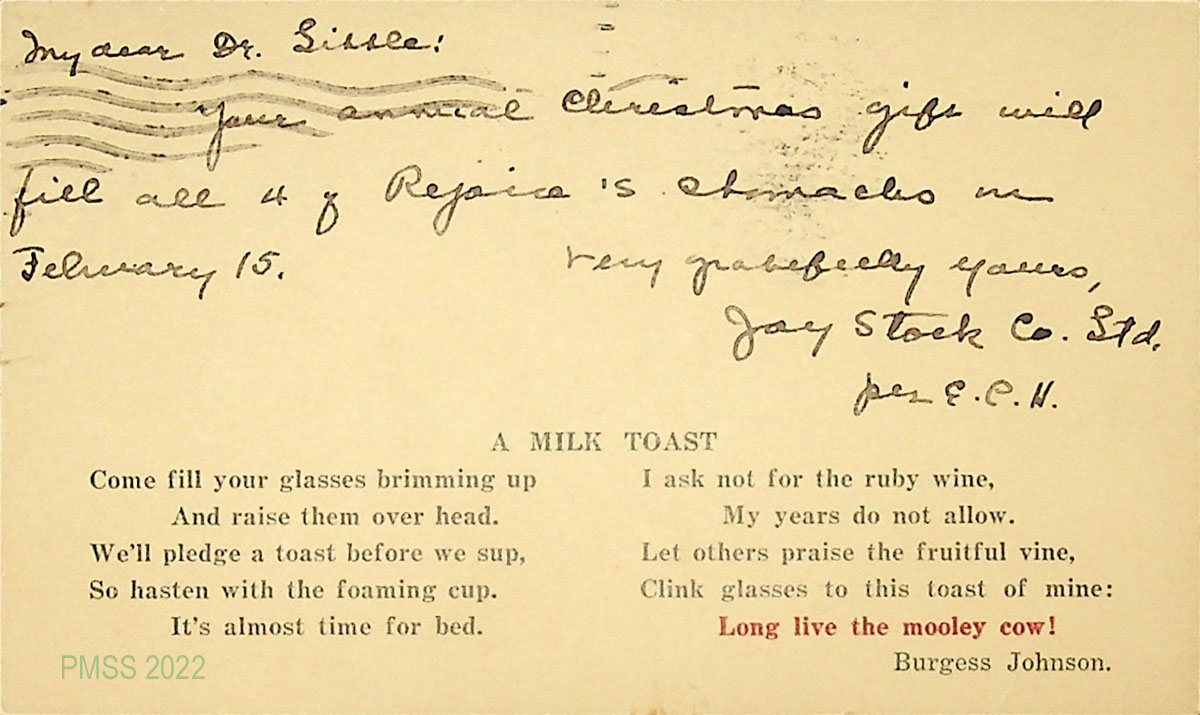 My dear Dr. Little:
Your annual Christmas gift will
fill all 4 of Rejoice's stomachs on
February 15.
Very gratefully yours,
Joy Stock Co. Ltd.
per E. C. H.
A MILK TOAST
Come fill your glasses brimming up
And raise them over head.
We'll pledge a toast before we sup,
So hasten with the foaming cup.
It's almost time for bed.
I ask not for the ruby wine,
My years do not allow.
Let others praise the fruitful vine,
Clink glasses to this toast of mine:
Long live the mooley cow!
Burgess Johnson.
PMSS 2022